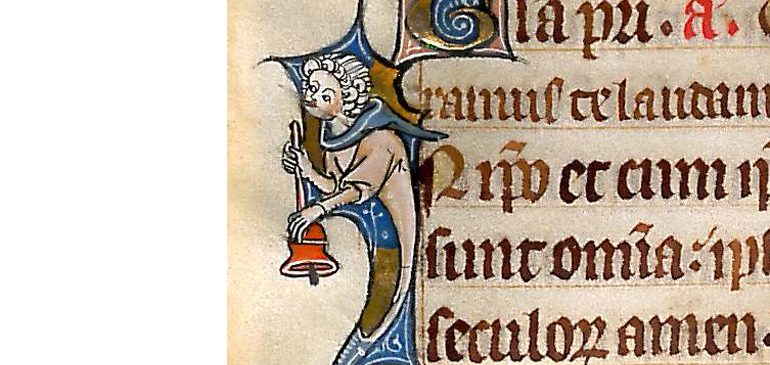 la pri. a.
ramus te laudam
N ip̄o et cum ip
sunt omīa: ip
seculoꝝ amen.